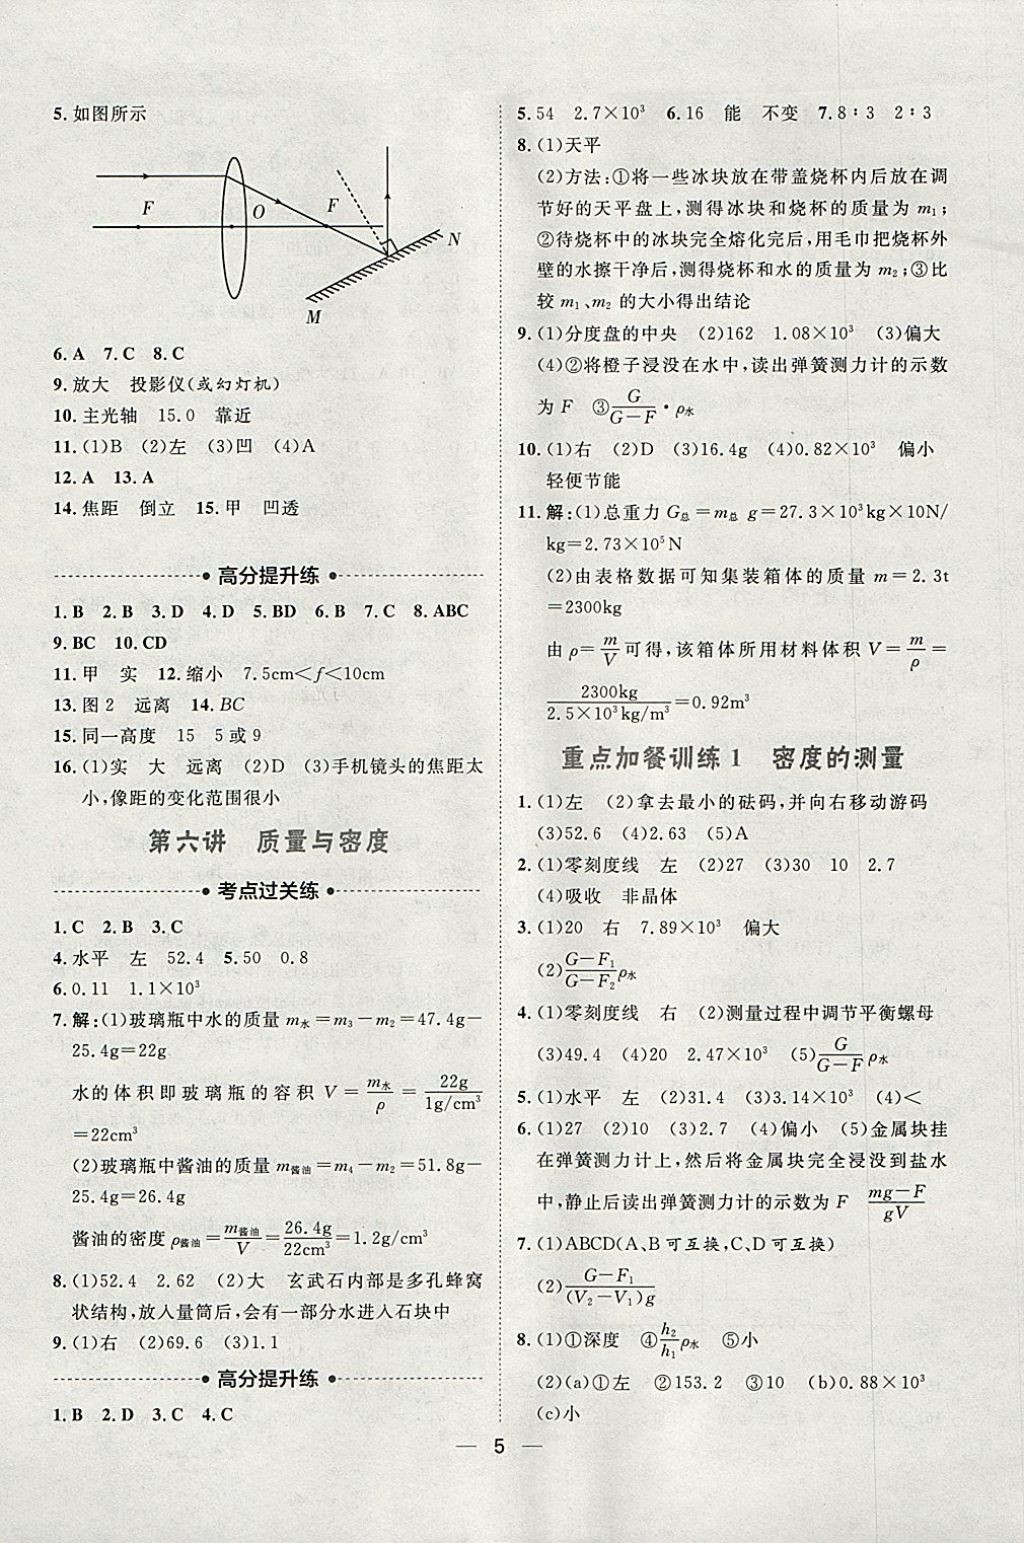 5.如图所示
F
O
F
N
M
6.A 7.C 8.C
9.放大 投影仪(或幻灯机)
10.主光轴 15.0 靠近
11.(1)B (2)左 (3)凹 (4)A
12.A 13.A
14.焦距 倒立 15.甲 凹透
高分提升练
1.B 2.B 3.D 4.D 5.BD 6.B 7.C 8.ABC
9.BC 10.CD
11.甲 实 12.缩小 7.5cm＜f＜10cm
13.图2 远离 14.BC
15.同一高度 15 5或9
16.(1)实 大 远离 (2)D (3)手机镜头的焦距太
小,像距的变化范围很小
第六讲 质量与密度
考点过关练
1.C 2.B 3.C
4.水平 左 52.4 5.50 0.8
6.0.11 1.1×10³
7.解:(1)玻璃瓶中水的质量 m水=m₃－m₂=47.4g－
25.4g=22g
水的体积即玻璃瓶的容积 V=m水/ρ=22g/1g/cm³
=22cm³
(2)玻璃瓶中酱油的质量 m酱油=m₄－m₂=51.8g－
25.4g=26.4g
酱油的密度 ρ酱油=m酱油/V=26.4g/22cm³=1.2g/cm³
8.(1)52.4 2.62 (2)大 玄武石内部是多孔蜂窝
状结构,放入量筒后,会有一部分水进入石块中
9.(1)右 (2)69.6 (3)1.1
高分提升练
1.B 2.D 3.C 4.C
5.54 2.7×10³ 6.16 能 不变 7.8∶3 2∶3
8.(1)天平
(2)方法:①将一些冰块放在带盖烧杯内后放在调
节好的天平盘上,测得冰块和烧杯的质量为 m₁;
②待烧杯中的冰块完全熔化完后,用毛巾把烧杯外
壁的水擦干净后,测得烧杯和水的质量为 m₂;③比
较 m₁、m₂ 的大小得出结论
9.(1)分度盘的中央 (2)162 1.08×10³ (3)偏大
(4)②将橙子浸没在水中,读出弹簧测力计的示数
为 F ③G/(G－F)·ρ水
10.(1)右 (2)D (3)16.4g (4)0.82×10³ 偏小
轻便节能
11.解:(1)总重力 G总=m总 g=27.3×10³kg×10N/
kg=2.73×10⁵N
(2)由表格数据可知集装箱体的质量 m=2.3t
=2300kg
由 ρ=m/V可得,该箱体所用材料体积 V=m/ρ=
2300kg/2.5×10³kg/m³=0.92m³
重点加餐训练1 密度的测量
1.(1)左 (2)拿去最小的砝码,并向右移动游码
(3)52.6 (4)2.63 (5)A
2.(1)零刻度线 左 (2)27 (3)30 10 2.7
(4)吸收 非晶体
3.(1)20 右 7.89×10³ 偏大
(2)(G－F₁)/(G－F₂)ρ水
4.(1)零刻度线 右 (2)测量过程中调节平衡螺母
(3)49.4 (4)20 2.47×10³ (5)G/(G－F)ρ水
5.(1)水平 左 (2)31.4 (3)3.14×10³ (4)＜
6.(1)27 (2)10 (3)2.7 (4)偏小 (5)金属块挂
在弹簧测力计上,然后将金属块完全浸没到盐水
中,静止后读出弹簧测力计的示数为 F (mg－F)/gV
7.(1)ABCD(A、B可互换,C、D可互换)
(2)(G－F₁)/(V₂－V₁)g
8.(1)①深度 ④h₂/h₁ρ水 ⑤小
(2)(a)①左 ②153.2 ③10 (b)0.88×10³
(c)小
5